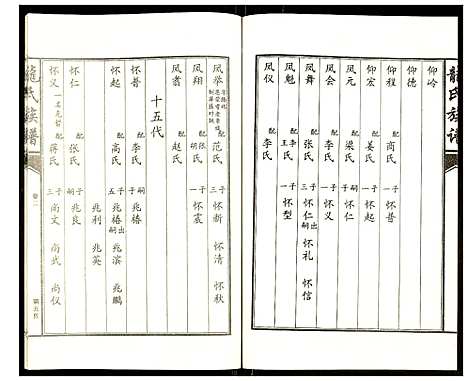 龍氏族譜
仰岭
仰德
仰程 配商氏 子一 怀普
仰宏 配姜氏 子一 怀起
凤元 配梁氏 子一 怀仁
凤会 配李氏 子一 怀义
凤舞 配张氏 子三 怀仁出 怀礼 怀信
凤魁 配李氏 王氏 子一 怀型
凤仪 配李氏
凤举 配范氏 子三 怀新 怀清 怀秋
凤翔 配胡氏 张氏 子一 怀宬
凤翥 配赵氏
十五代
怀普 配李氏 子一 兆椿
怀起 配高氏 子五 兆椿嗣出 兆滨 兆鹏 兆利 兆英
怀仁 配张氏 嗣子 兆良
怀义 一名克哲 配氏 子三 尚文 尚武 尚仪
龍氏族譜
卷二